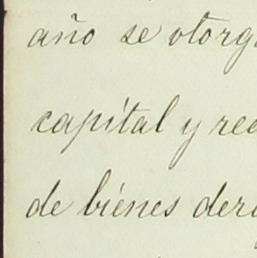 año se otorg
capital y rec
de bienes der